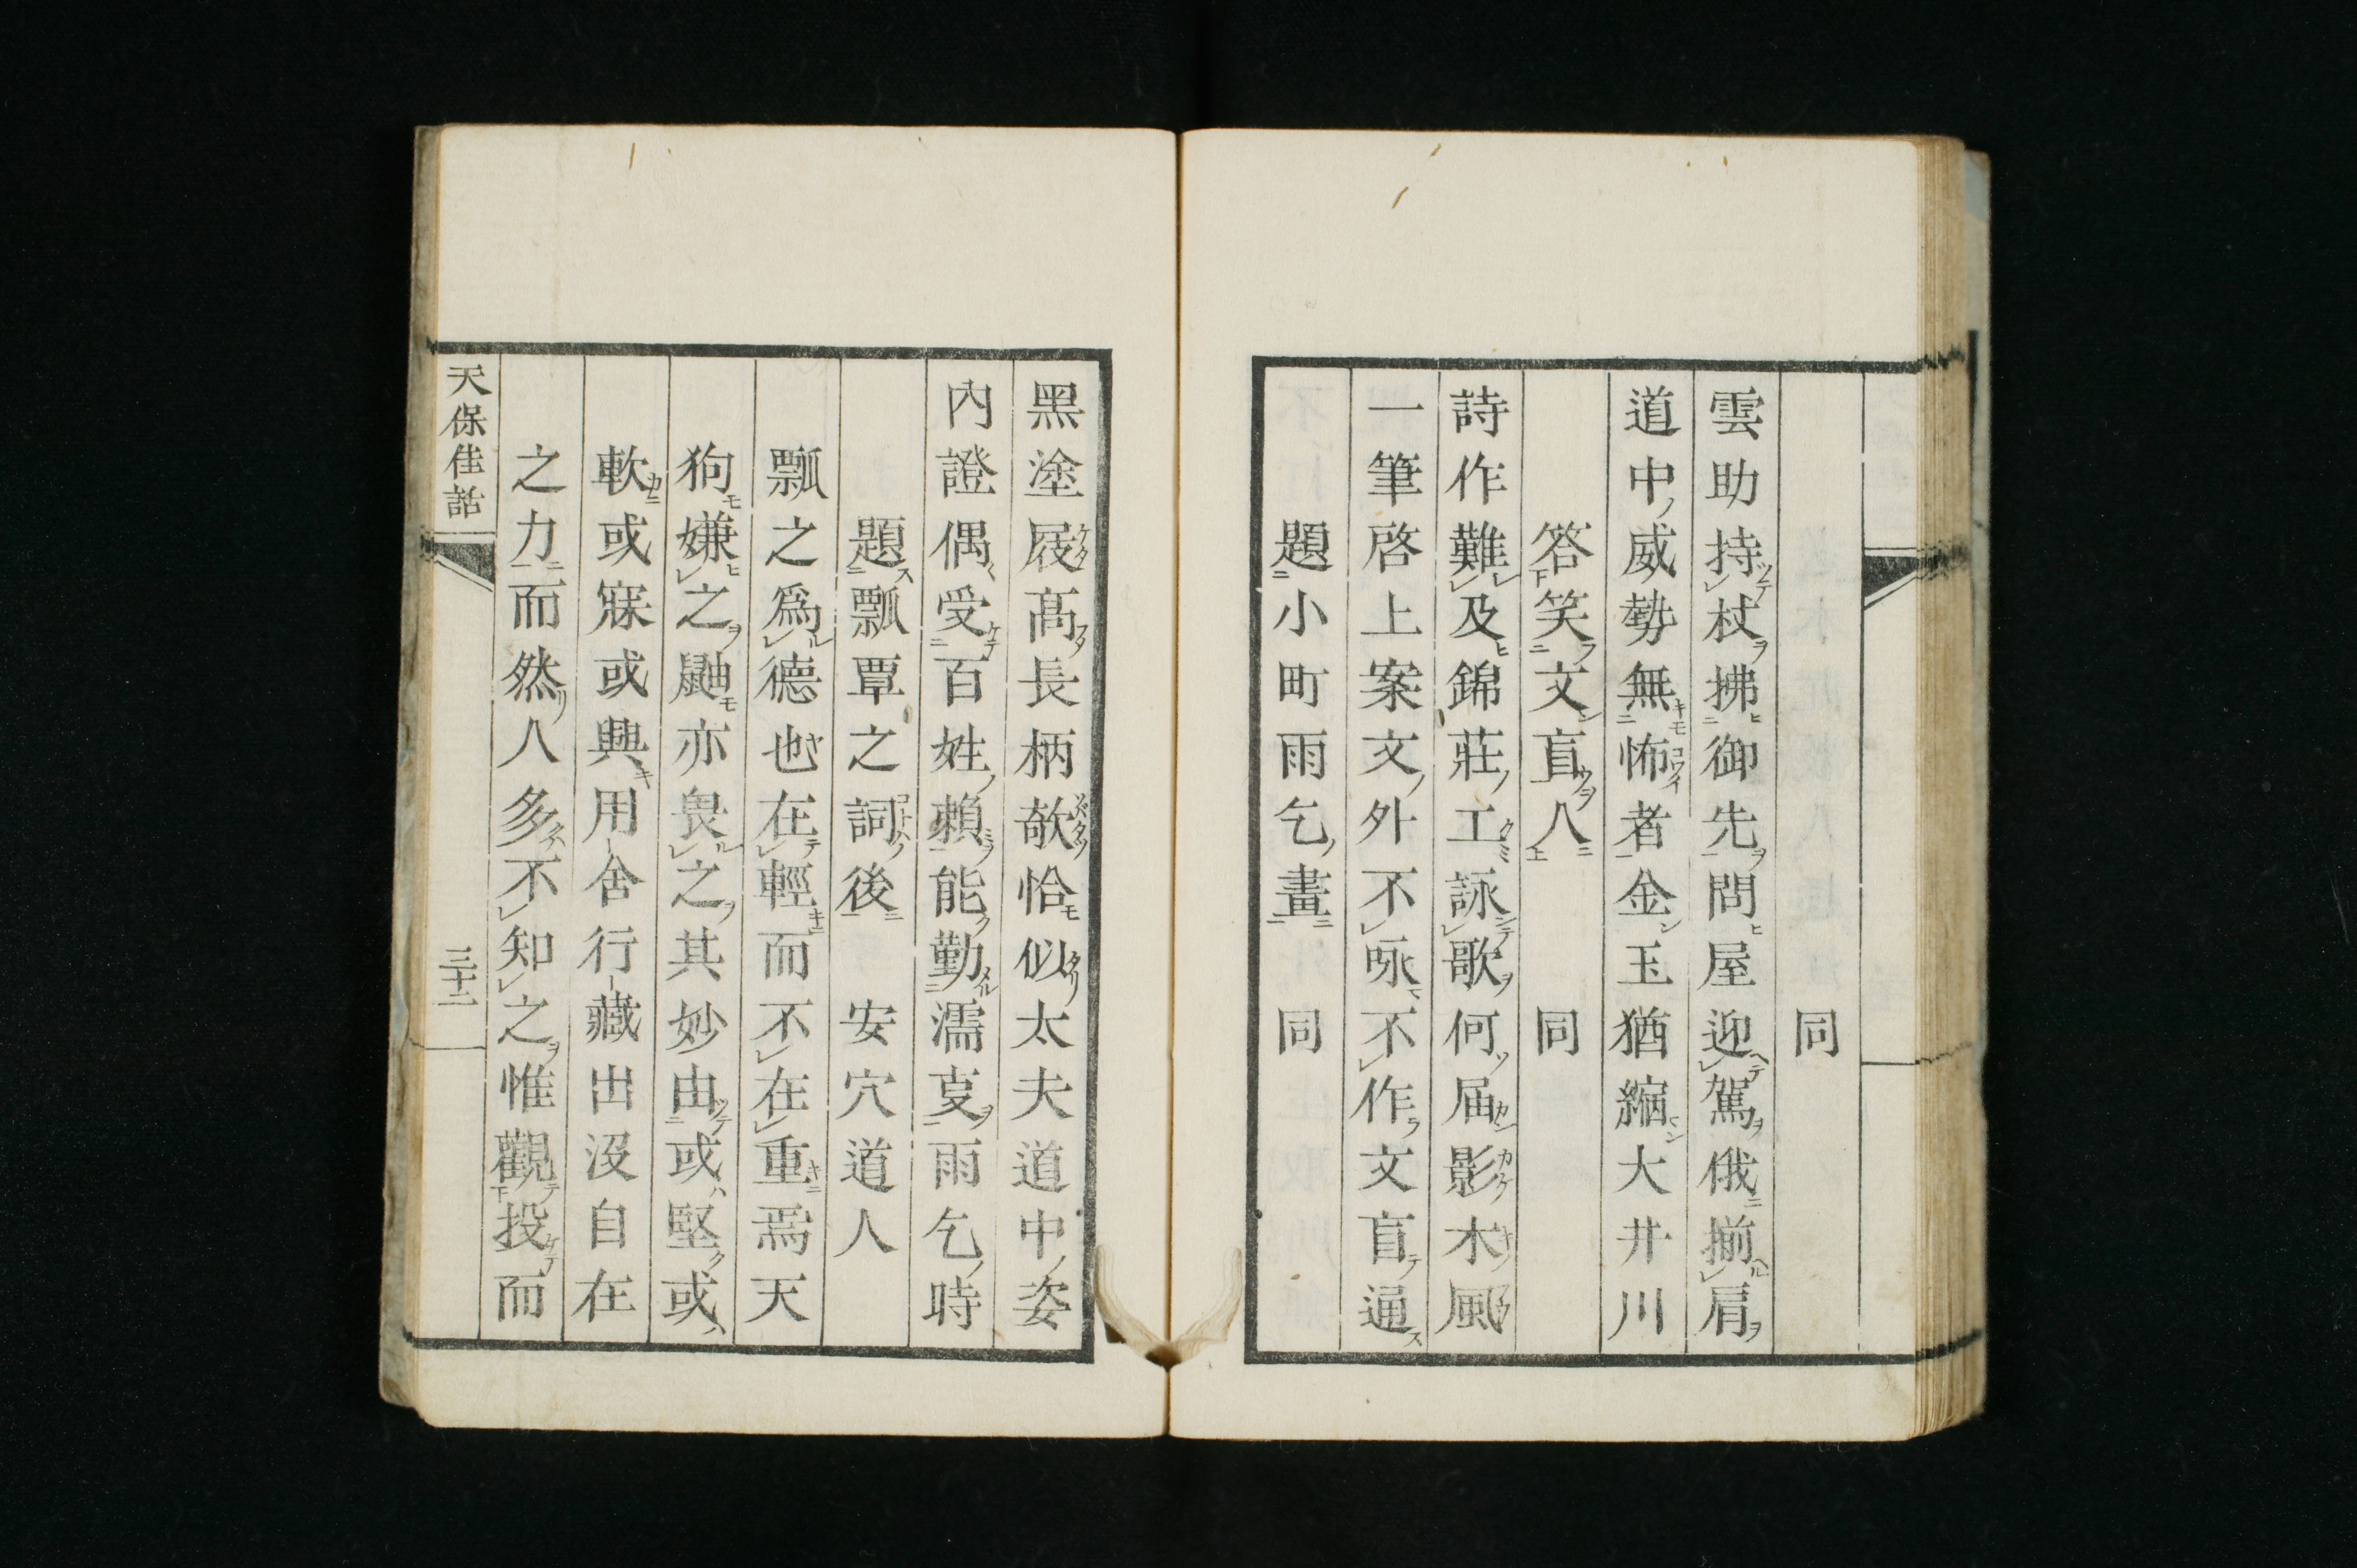 同
雲助持杖拂御先問屋迎駕俄揃肩
道中威勢無怖者金玉猶縮大井川
答笑文盲人 同
詩作難及錦莊工詠歌何届影木風
一筆啓上案文外不咏不作文盲通
題小町雨乞畫 同
黑塗屐髙長柄欹恰似太夫道中姿
內證偶受百姓賴能勤濡㕝雨乞時
題瓢覃之詞後 安穴道人
瓢之爲德也在輕而不在重焉天
狗嫌之鼬亦畏之其妙由或堅或
軟或寐或興用舍行藏出沒自在
之力而然人多不知之惟觀投而
天保佳話
三十二